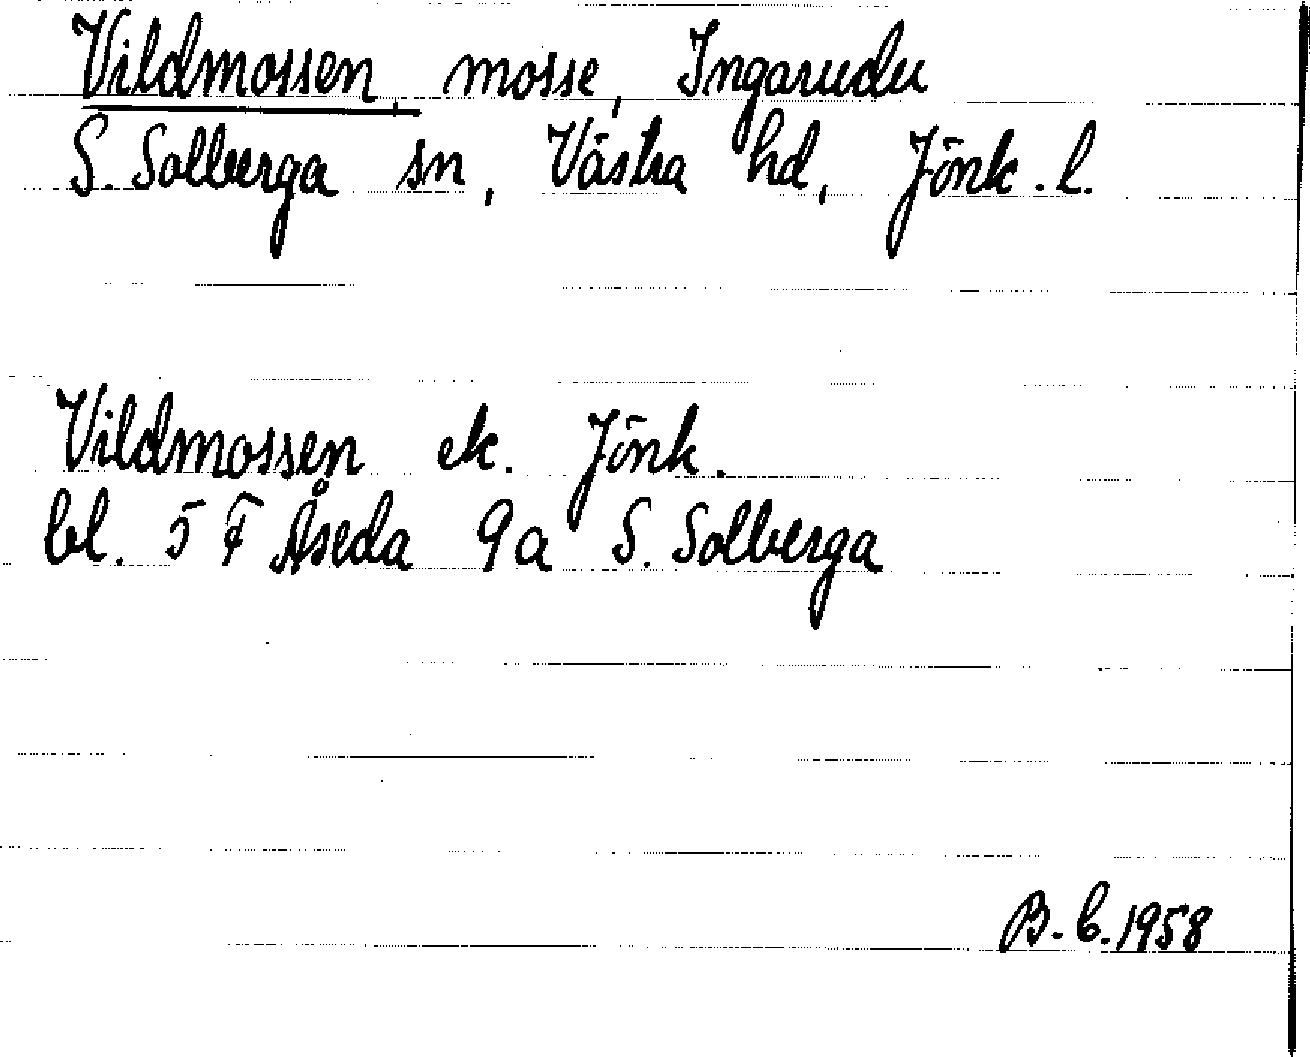 Vildmossen, mosse, Ingarudu
S. Solberga sn, Västra hd, Jönk. l.
Vildmossen ek. Jönk.
bl. 5 F Åseda 9a S. Solberga
B. b. 1958